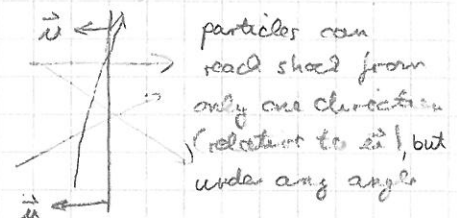 u⃗ particles can
reach shock from
only one direction
(relative to u⃗), but
under any angle
u⃗